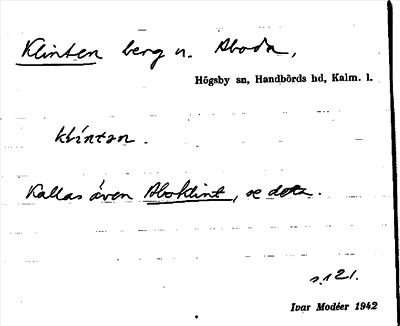 Klinten berg n. Aboda,
Högsby sn, Handbörds hd, Kalm. l.
klintan.
Kallas även Aboklint, se detta.
s. 121.
Ivar Modéer 1942